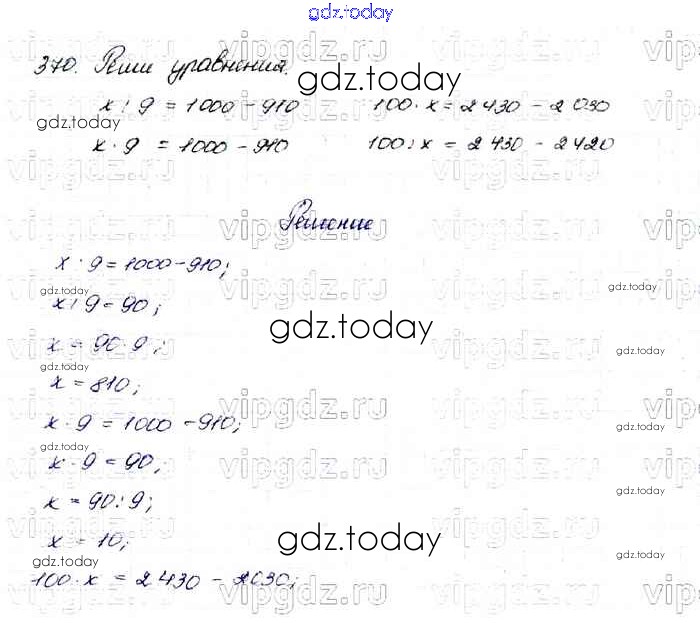 gdz.today
370. Реши уравнения.
gdz.today
x : 9 = 1000 - 910 100 · x = 2430 - 2030
gdz.today
x · 9 = 1000 - 910 100 : x = 2430 - 2420
vipgdz.ru
Решение
x · 9 = 1000 - 910;
gdz.today gdz.today
x : 9 = 90;
gdz.today
x = 90 · 9;
gdz.today gdz.today
x = 810;
x · 9 = 1000 - 910;
gdz.today gdz.today
x · 9 = 90;
gdz.today
x = 90 : 9;
x = 10;
gdz.today
gdz.today gdz.today
100 · x = 2430 - 2030;